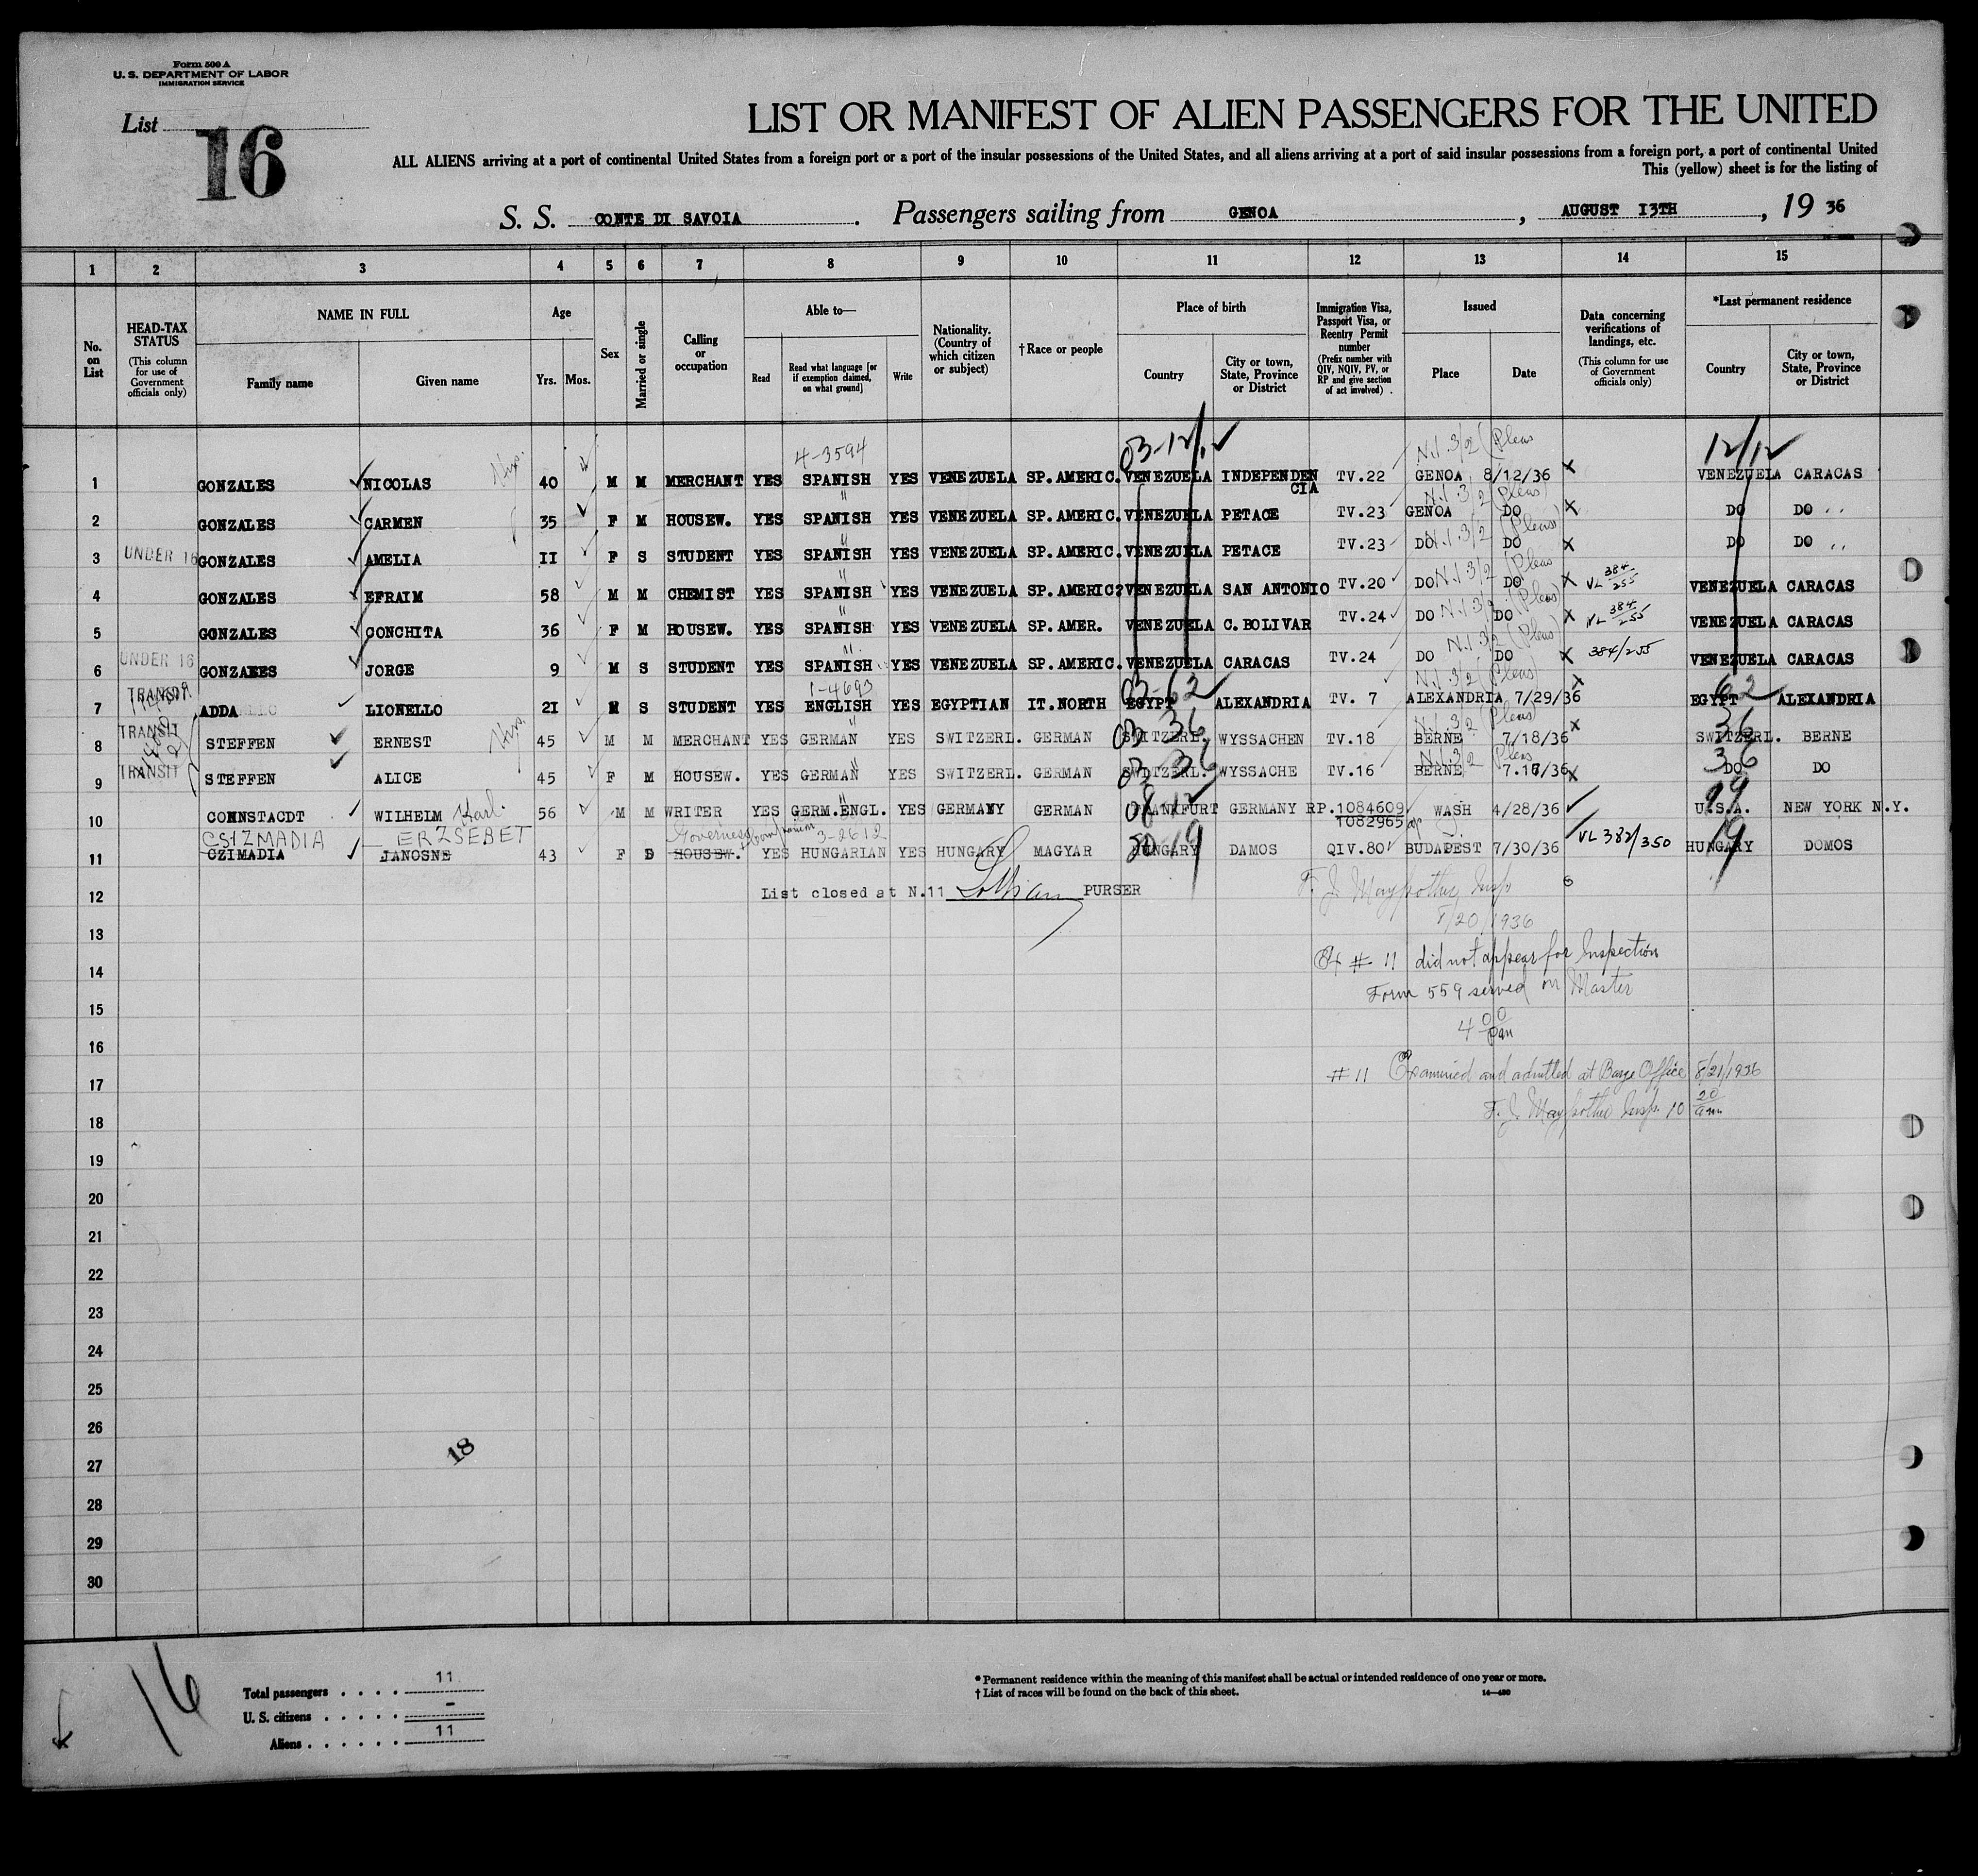 Form 500 A
U. S. DEPARTMENT OF LABOR
IMMIGRATION SERVICE
List 16
LIST OR MANIFEST OF ALIEN PASSENGERS FOR THE UNITED
ALL ALIENS arriving at a port of continental United States from a foreign port or a port of the insular possessions of the United States, and all aliens arriving at a port of said insular possessions from a foreign port, a port of continental United
This (yellow) sheet is for the listing of
S. S. CONTE DI SAVOIA. Passengers sailing from GENOA, AUGUST 13TH, 19 36
1 2 3 4 5 6 7 8 9 10 11 12 13 14 15
No. on List
HEAD-TAX STATUS (This column for use of Government officials only)
NAME IN FULL
Family name Given name
Age
Yrs. Mos.
Sex
Married or single
Calling or occupation
Able to—
Read Read what language [or if exemption claimed, on what ground] Write
Nationality. (Country of which citizen or subject)
†Race or people
Place of birth
Country City or town, State, Province or District
Immigration Visa, Passport Visa, or Reentry Permit number (Prefix number with QIV, NQIV, PV, or RP and give section of act involved).
Issued
Place Date
Data concerning verifications of landings, etc. (This column for use of Government officials only)
*Last permanent residence
Country City or town, State, Province or District
4-3594 03-12/12 N.I. 3/2 (Pleas 12/12
1 GONZALES NICOLAS 40 M M MERCHANT YES SPANISH YES VENEZUELA SP.AMERIC. VENEZUELA INDEPENDENCIA TV.22 GENOA 8/12/36 X VENEZUELA CARACAS
" N.I. 3/2 (Pleas)
2 GONZALES CARMEN 35 F M HOUSEW. YES SPANISH YES VENEZUELA SP.AMERIC. VENEZUELA PETACE TV.23 GENOA DO X DO DO
" N.I. 3/2 (Pleas)
3 UNDER 16 GONZALES AMELIA II F S STUDENT YES SPANISH YES VENEZUELA SP.AMERIC. VENEZUELA PETACE TV.23 DO DO X DO DO
" N.I 3/2 (Pleas
4 GONZALES EFRAIM 58 M M CHEMIST YES SPANISH YES VENEZUELA SP.AMERIC? VENEZUELA SAN ANTONIO TV.20 DO DO X VL 384/255 VENEZUELA CARACAS
" N.I 3/2 (Pleas)
5 GONZALES CONCHITA 36 F M HOUSEW. YES SPANISH YES VENEZUELA SP.AMER. VENEZUELA C.BOLIVAR TV.24 DO DO X VL 384/255 VENEZUELA CARACAS
" N.I 3/2 (Pleas)
6 UNDER 16 GONZALES JORGE 9 M S STUDENT YES SPANISH YES VENEZUELA SP.AMERIC. VENEZUELA CARACAS TV.24 DO DO X 384/255 VENEZUELA CARACAS
1-4693 03-62 N.I. 3/2 (Pleas) 62
7 TRANSIT ADDA LIONELLO 2I M S STUDENT YES ENGLISH YES EGYPTIAN IT.NORTH EGYPT ALEXANDRIA TV. 7 ALEXANDRIA 7/29/36 X EGYPT ALEXANDRIA
" 03 36 N.I 3/2 (Pleas) 36
8 TRANSIT STEFFEN ERNEST 45 M M MERCHANT YES GERMAN YES SWITZERL. GERMAN SWITZERL. WYSSACHEN TV.18 BERNE 7/18/36 X SWITZERL. BERNE
" 03 36 N.I 3/2 Pleas 36
9 TRANSIT STEFFEN ALICE 45 F M HOUSEW. YES GERMAN YES SWITZERL. GERMAN SWITZERL. WYSSACHE TV.16 BERNE X DO DO
10 CONNSTACDT WILHELM Karl. 56 M M WRITER YES GERM.ENGL. YES GERMANY GERMAN FRANKFURT GERMANY RP.1084609 WASH 4/28/36 U.S.A. NEW YORK N.Y.
1082965
CSIZMADIA ERZSEBET Governess 3-2612
11 CZIMADIA JANOSNE 43 F D HOUSEW. YES HUNGARIAN YES HUNGARY MAGYAR HUNGARY DAMOS QIV.80 BUDAPEST 7/30/36 VL 382/350 HUNGARY DOMOS
12 List closed at N.11 PURSER
8/20/1936
13
14 # 11 did not appear for Inspection
Form 559 served on Master
15
4 00 pm
16
17 # 11 Examined and admitted at Barge Office 8/21/1936
10 20 am
18
19
20
21
22
23
24
25
26
18
27
28
29
30
16
Total passengers . . . . 11
U. S. citizens . . . . . -
Aliens . . . . . . 11
* Permanent residence within the meaning of this manifest shall be actual or intended residence of one year or more.
† List of races will be found on the back of this sheet.
14—490